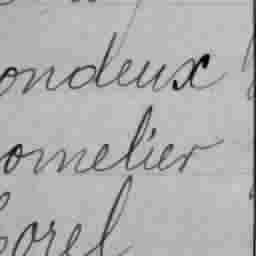 ondeux
omelier
orel